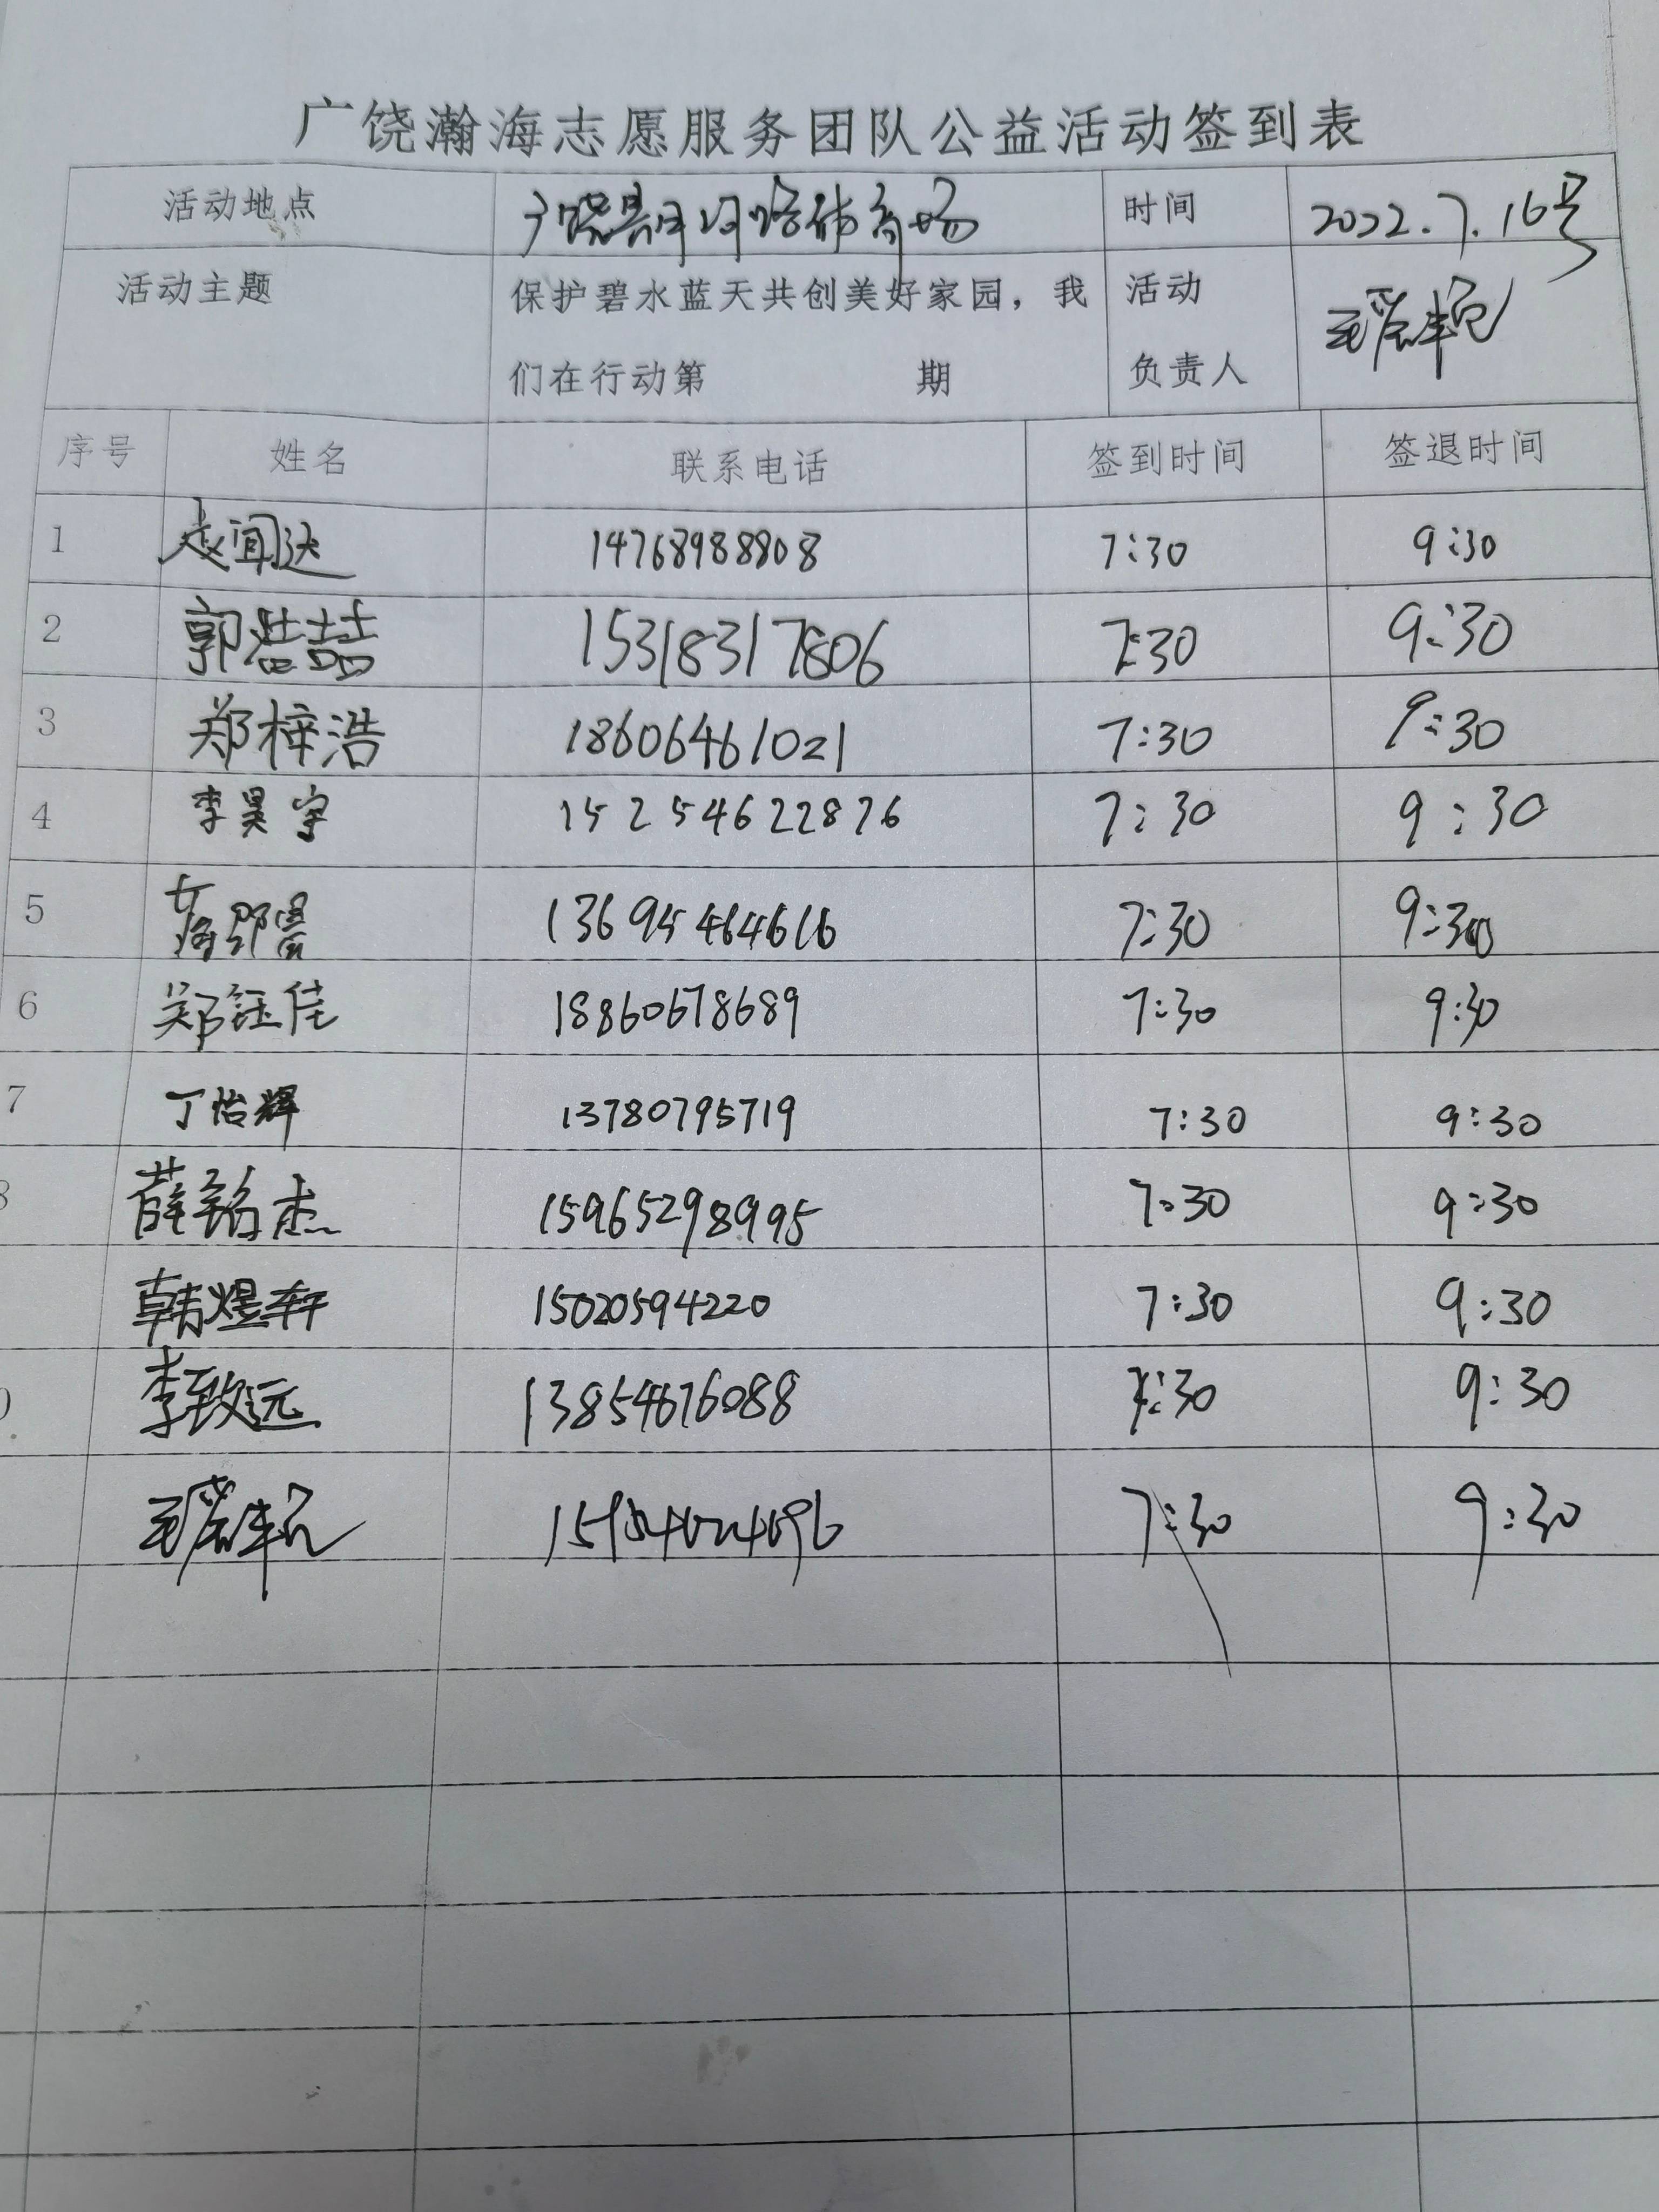 广饶瀚海志愿服务团队公益活动签到表
活动地点 时间 2022.7.16号
活动主题 保护碧水蓝天共创美好家园，我 活动
们在行动第 期 负责人
序号 姓名 联系电话 签到时间 签退时间
1 赵闻达 14768988808 7:30 9:30
2 郭浩喆 15318317806 7:30 9:30
3 郑梓浩 18606461021 7:30 9:30
4 李昊宇 15254622876 7:30 9:30
5 13695464616 7:30 9:30
6 郑钰佳 18860678689 7:30 9:30
7 丁怡辉 13780795719 7:30 9:30
薛铭杰 15965298995 7:30 9:30
韩煜轩 15020594220 7:30 9:30
李致远 13854676088 7:30 9:30
7:30 9:30